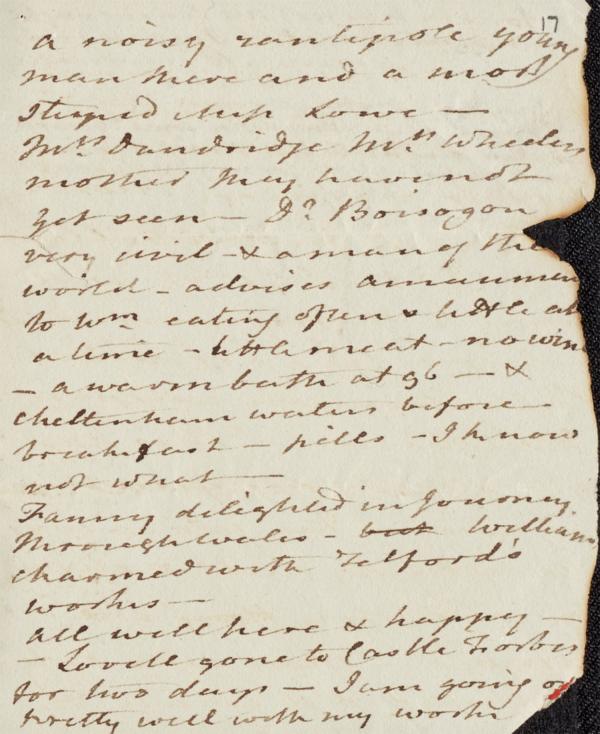 17
a noisy rantipole young
man there and a most
stupid Miss Lowe —
Mrs Dandridge Mrs Wheelers
mother they have not
yet seen — Dr Boisogon
very civil - & a man of the
world - advises amusemen
to Wm eating often & little at
a time - little meat - no wine
- a warm bath at 96 — &
Cheltenham waters before
breakfast — pills - I know
not what —
Fanny delighted in Journey
through Wales - but William
charmed with Telford's
works —
All well here & happy —
— Lovell gone to Castle Forbes
for two days — I am going on
pretty well with my works